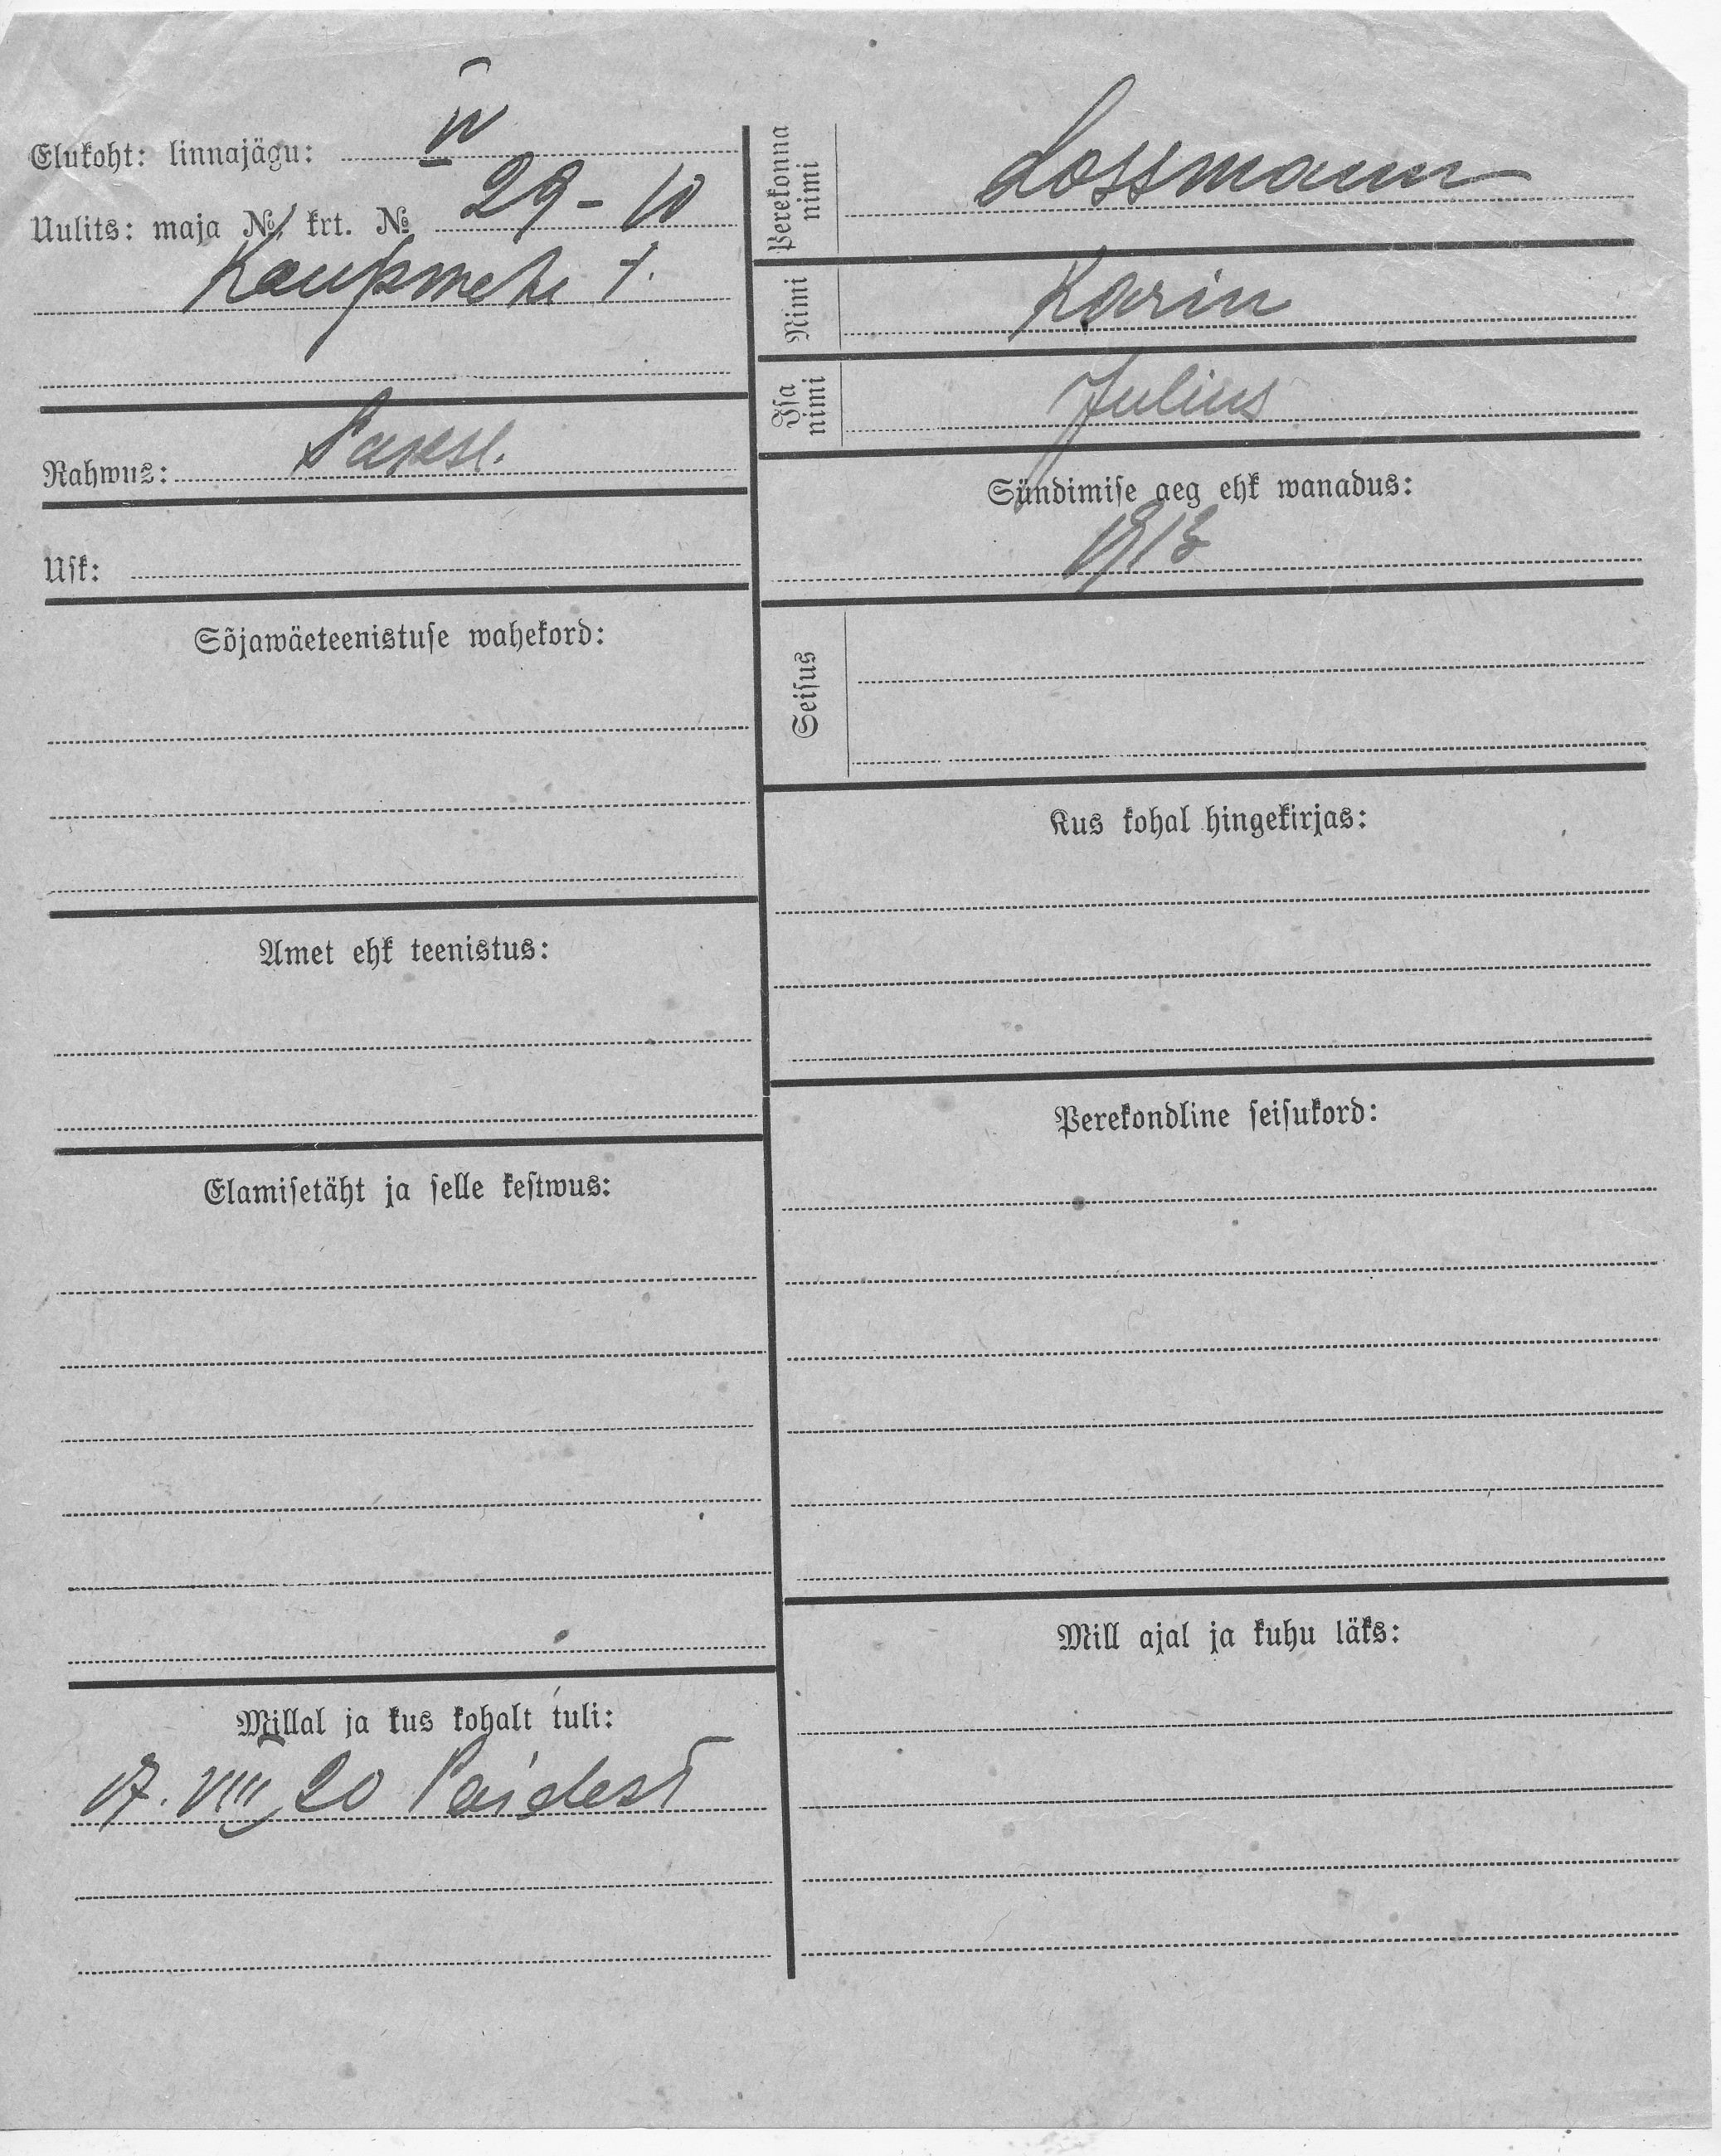 Elukoht: linnajägu: IV
Uulits: maja № krt. № 29 - 10
Kaupmehe t.
Rahwus: Saksl.
Usk:
Sõjawäeteenistuse wahekord:
Amet ehk teenistus:
Elamisetäht ja selle kestwus:
Millal ja kus kohalt tuli:
17. VIII 20 Paidest
Perekonna nimi
Lossmann
Nimi
Karin
Isa nimi
Julius
Sündimise aeg ehk wanadus:
1913
Seisus
Kus kohal hingekirjas:
Perekondline seisukord:
Mill ajal ja kuhu läks: